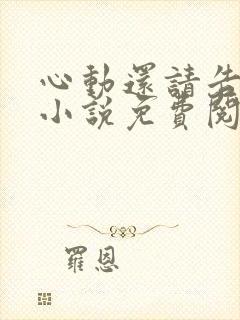 心動還請告
小說免費閱
羅恩